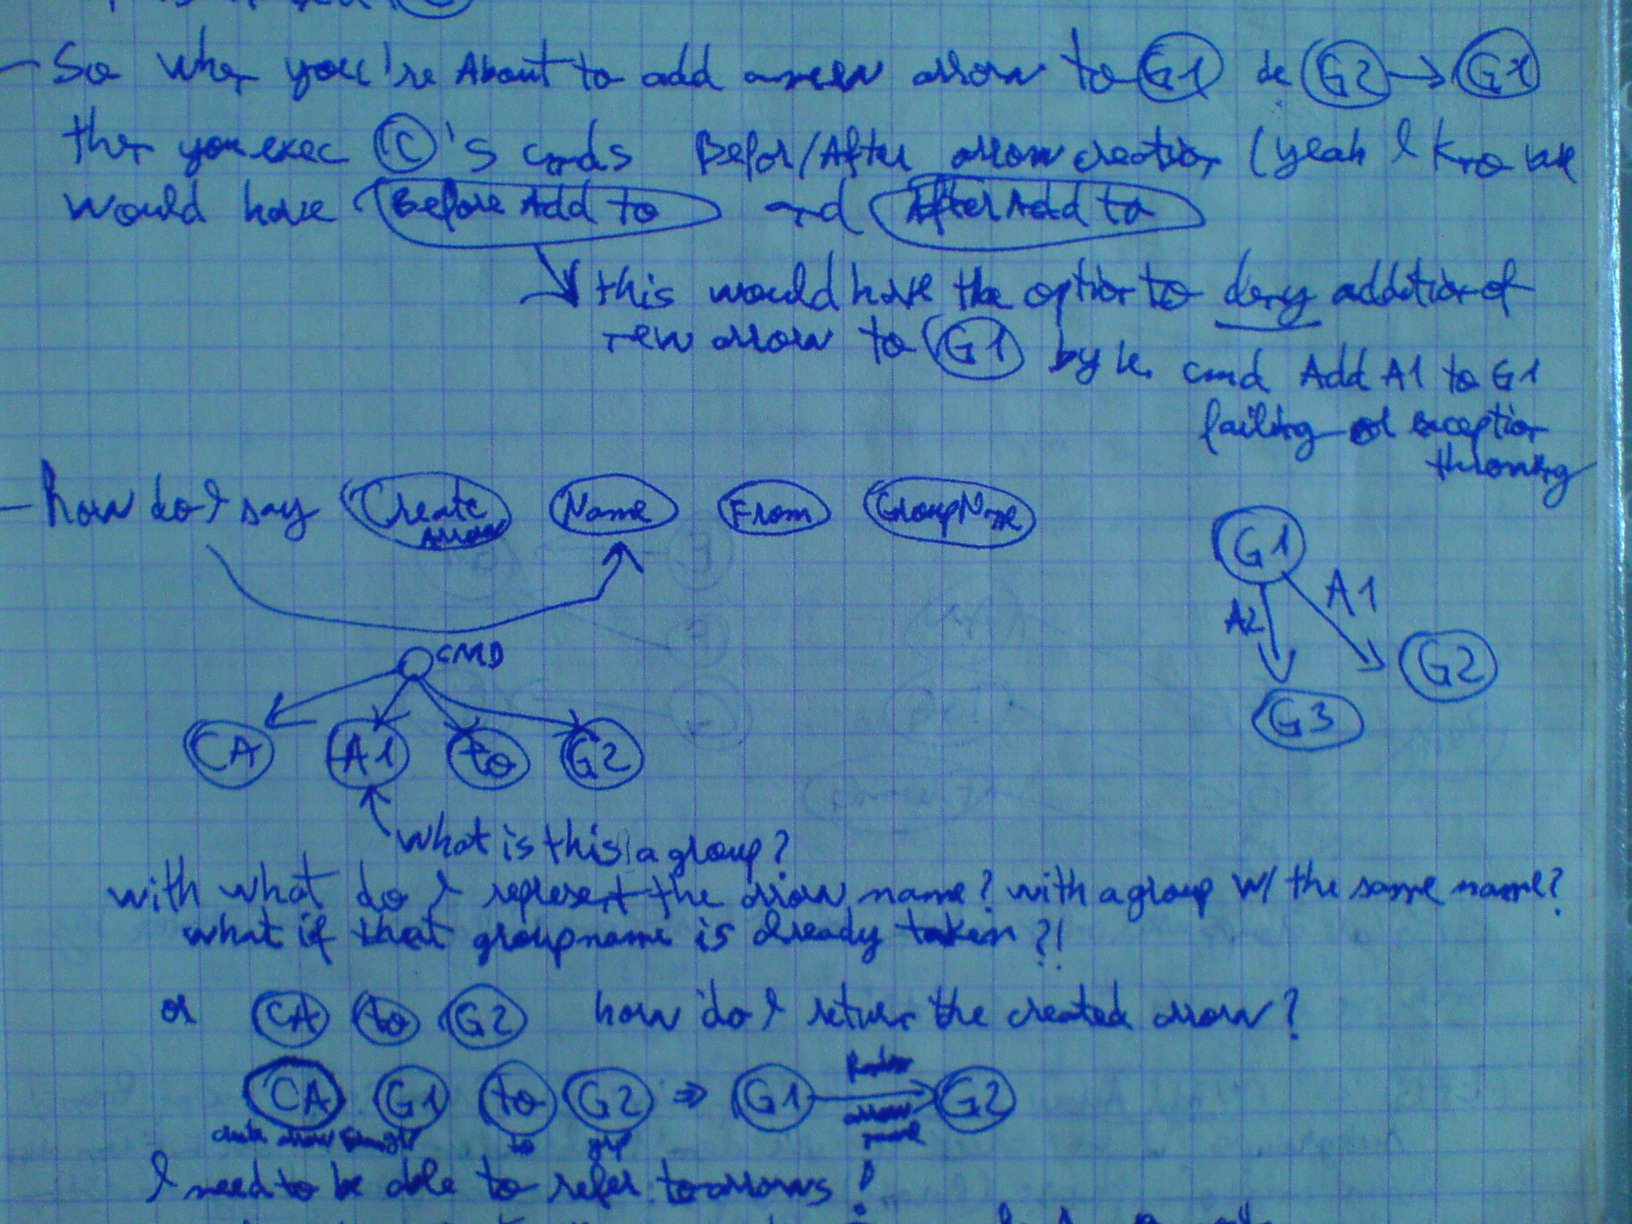 - So when you're About to add a new arrow to G1 ie G2 → G1
then you exec C's cmds Befor/After arrow creation (yeah I know we
would have Before Add to and After Add to
this would have the option to deny addition of
new arrow to G1 by ie. cmd Add A1 to G1
failing or exception
throwing
- how do I say Create Arrow Name From GroupName
G1
A2 A1
G2
G3
CMD
CA A1 to G2
What is this a group?
with what do I represent the arrow name? with a group w/ the same name?
what if that groupname is already taken?!
or CA to G2 how do I return the created arrow?
CA G1 to G2 ⇒ G1 → G2
arrow name
create arrow to grp
I need to be able to refer to arrows!